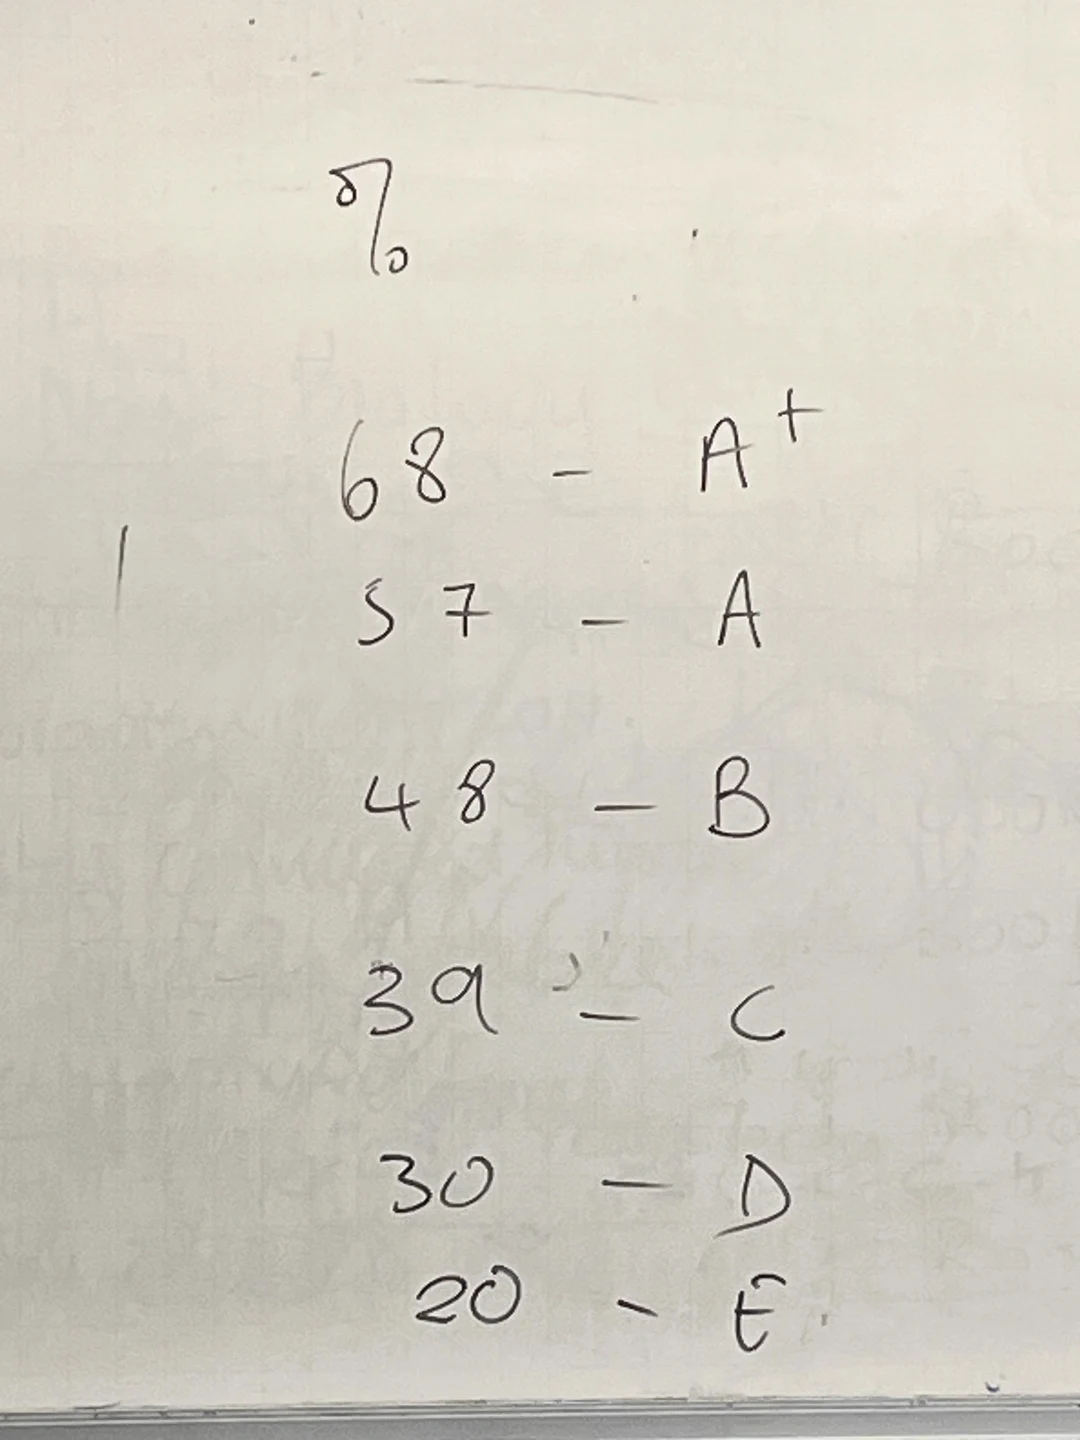 %
68 - A+
57 - A
48 - B
39 - C
30 - D
20 - E